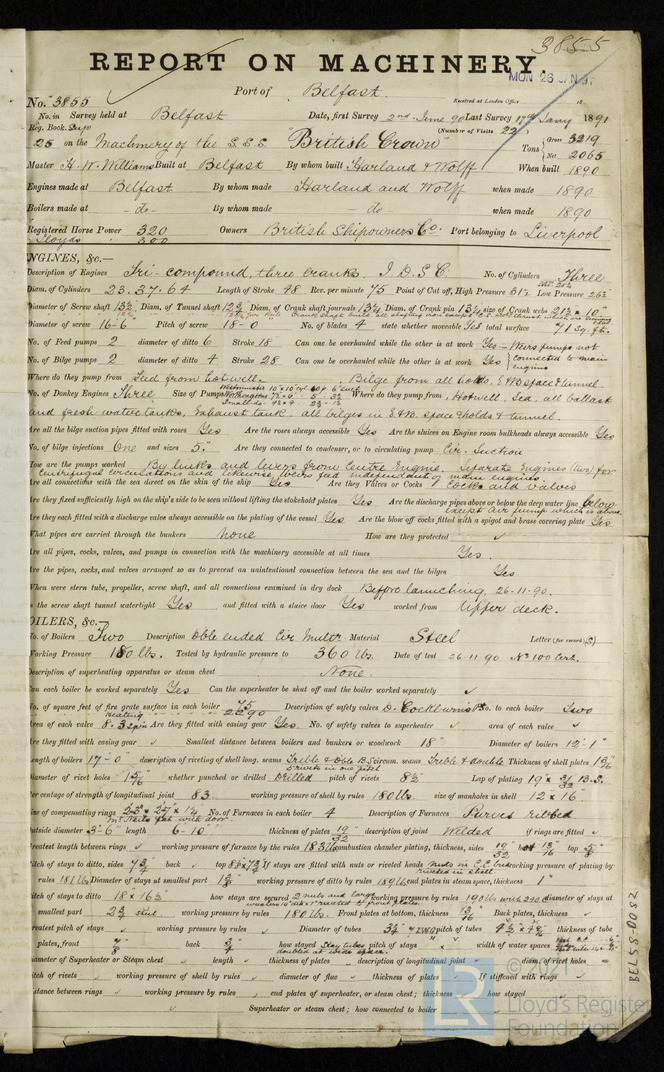 3855
REPORT ON MACHINERY.
MON 26 JAN 91
Port of Belfast.
Received at London Office 18
No. 3855
No. in Survey held at Belfast Date, first Survey 2nd June 90 Last Survey 17th Jany 1891
Reg. Book. Supt (Number of Visits 22)
25 on the Machinery of the S.S.S. "British Crown" Tons Gross 3219
Net 2065
Master H. W. Williams Built at Belfast By whom built Harland & Wolff When built 1890
Engines made at Belfast By whom made Harland and Wolff when made 1890
Boilers made at - do - By whom made - do - when made 1890
Registered Horse Power 320 Owners British Shipowners Co. Port belonging to Liverpool
Lloyds 300
ENGINES, &c.—
Description of Engines Tri-compound, three cranks. I.D.S.C. No. of Cylinders Three
Diam. of Cylinders 23.37.64 Length of Stroke 48 Rev. per minute 75 Point of Cut off, High Pressure Low Pressure
Diameter of Screw shaft 13½ Diam. of Tunnel shaft Diam. of Crank shaft journals 13¼ Diam. of Crank pin 13¼ size of Crank webs
Diameter of screw 16-6 Pitch of screw 18-0 No. of blades 4 state whether moveable Yes total surface 71 Sq. ft.
No. of Feed pumps 2 diameter of ditto 6 Stroke 18 Can one be overhauled while the other is at work Yes - Weirs pumps not
No. of Bilge pumps 2 diameter of ditto 4 Stroke 28 Can one be overhauled while the other is at work Yes connected to main engines
Where do they pump from, Feed from hotwell. - Bilge from all holds, E&B space & tunnel.
No. of Donkey Engines Three Size of Pumps Where do they pump from, Hotwell, Sea, all ballast
and fresh water tanks, Exhaust tank. all bilges in E & B. space & holds & tunnel.
Are all the bilge suction pipes fitted with roses Yes Are the roses always accessible Yes Are the sluices on Engine room bulkheads always accessible Yes
No. of bilge injections One and sizes 5" Are they connected to condenser, or to circulating pump Cir. Suction
How are the pumps worked By links and levers from Centre Engine. Separate Engines (two) for
Centrifugal circulations and likewise Weirs feed independent of main engines.
Are all connections with the sea direct on the skin of the ship Yes Are they Valves or Cocks Cocks and valves
Are they fixed sufficiently high on the ship's side to be seen without lifting the stokehold plates Yes Are the discharge pipes above or below the deep water line below
except Air pump which is above.
Are they each fitted with a discharge valve always accessible on the plating of the vessel Yes Are the blow off cocks fitted with a spigot and brass covering plate Yes
What pipes are carried through the bunkers None How are they protected ✓
Are all pipes, cocks, valves, and pumps in connection with the machinery accessible at all times Yes.
Are the pipes, cocks, and valves arranged so as to prevent an unintentional connection between the sea and the bilges Yes
When were stern tube, propeller, screw shaft, and all connections examined in dry dock Before launching, 26-11-90.
Is the screw shaft tunnel watertight Yes and fitted with a sluice door Yes worked from Upper deck.
BOILERS, &c.—
No. of Boilers Two Description Dble ended Cir Multr Material Steel Letter (for record) (S)
Working Pressure 180 lbs. Tested by hydraulic pressure to 360 lbs. Date of test 26.11.90 No 100 Cert.
Description of superheating apparatus or steam chest None.
Can each boiler be worked separately Yes Can the superheater be shut off and the boiler worked separately ✓
No. of square feet of fire grate surface in each boiler 75 Description of safety valves D. Cockburns Pt. No. to each boiler Two
heating 2290
Area of each valve Are they fitted with easing gear Yes. No. of safety valves to superheater ✓ area of each valve ✓
Are they fitted with easing gear ✓ Smallest distance between boilers and bunkers or woodwork 18" Diameter of boilers 12'-1"
Length of boilers 17-0 description of riveting of shell long. seams Treble & Dble B.S. circum. seams Treble & double Thickness of shell plates
Diameter of rivet holes 15/16 whether punched or drilled Drilled pitch of rivets Lap of plating
Per centage of strength of longitudinal joint 83. working pressure of shell by rules 180 lbs. size of manholes in shell 12 x 16"
Size of compensating rings No. of Furnaces in each boiler 4 Description of Furnaces Purves ribbed
Outside diameter 3'-6" length 6-10" thickness of plates 19/32 description of joint Welded if rings are fitted ✓
Greatest length between rings ✓ working pressure of furnace by the rules 183 lbs combustion chamber plating, thickness, sides 19/32 back top 5/8
Pitch of stays to ditto, sides 7¾ back ✓ top If stays are fitted with nuts or riveted heads nuts in C.C. but riveted in shell. working pressure of plating by
rules 181 lbs Diameter of stays at smallest part working pressure of ditto by rules 189 lbs end plates in steam space, thickness 1"
Pitch of stays to ditto 18" x 16½" how stays are secured 2 nuts and large washers working pressure by rules 190 lbs diameter of stays at
smallest part steel working pressure by rules 180 lbs. Front plates at bottom, thickness Back plates, thickness ✓
Greatest pitch of stays ✓ working pressure by rules ✓ Diameter of tubes 3¼" pitch of tubes thickness of tube
plates, front 7/8 back 3/4 how stayed Stay tubes pitch of stays width of water spaces
Diameter of Superheater or Steam chest ✓ length ✓ thickness of plates ✓ description of longitudinal joint ✓ diam. of rivet holes ✓
Pitch of rivets ✓ working pressure of shell by rules ✓ diameter of flue ✓ thickness of plates ✓ If stiffened with rings ✓
Distance between rings ✓ working pressure by rules ✓ end plates of superheater, or steam chest; thickness ✓ how stayed ✓
Superheater or steam chest; how connected to boiler ✓
BEL58-0082
© 2021
LR
Lloyd's Register
Foundation